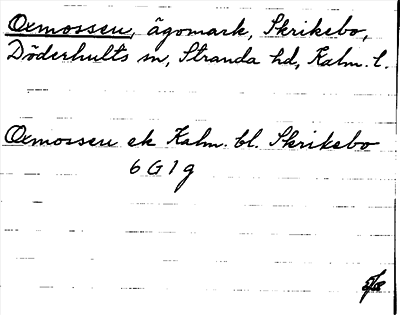 Oxmossen, ägomark, Skrikebo,
Döderhults sn, Stranda hd, Kalm. l.
Oxmossen ek Kalm. bl. Skrikebo
6 G 1 g